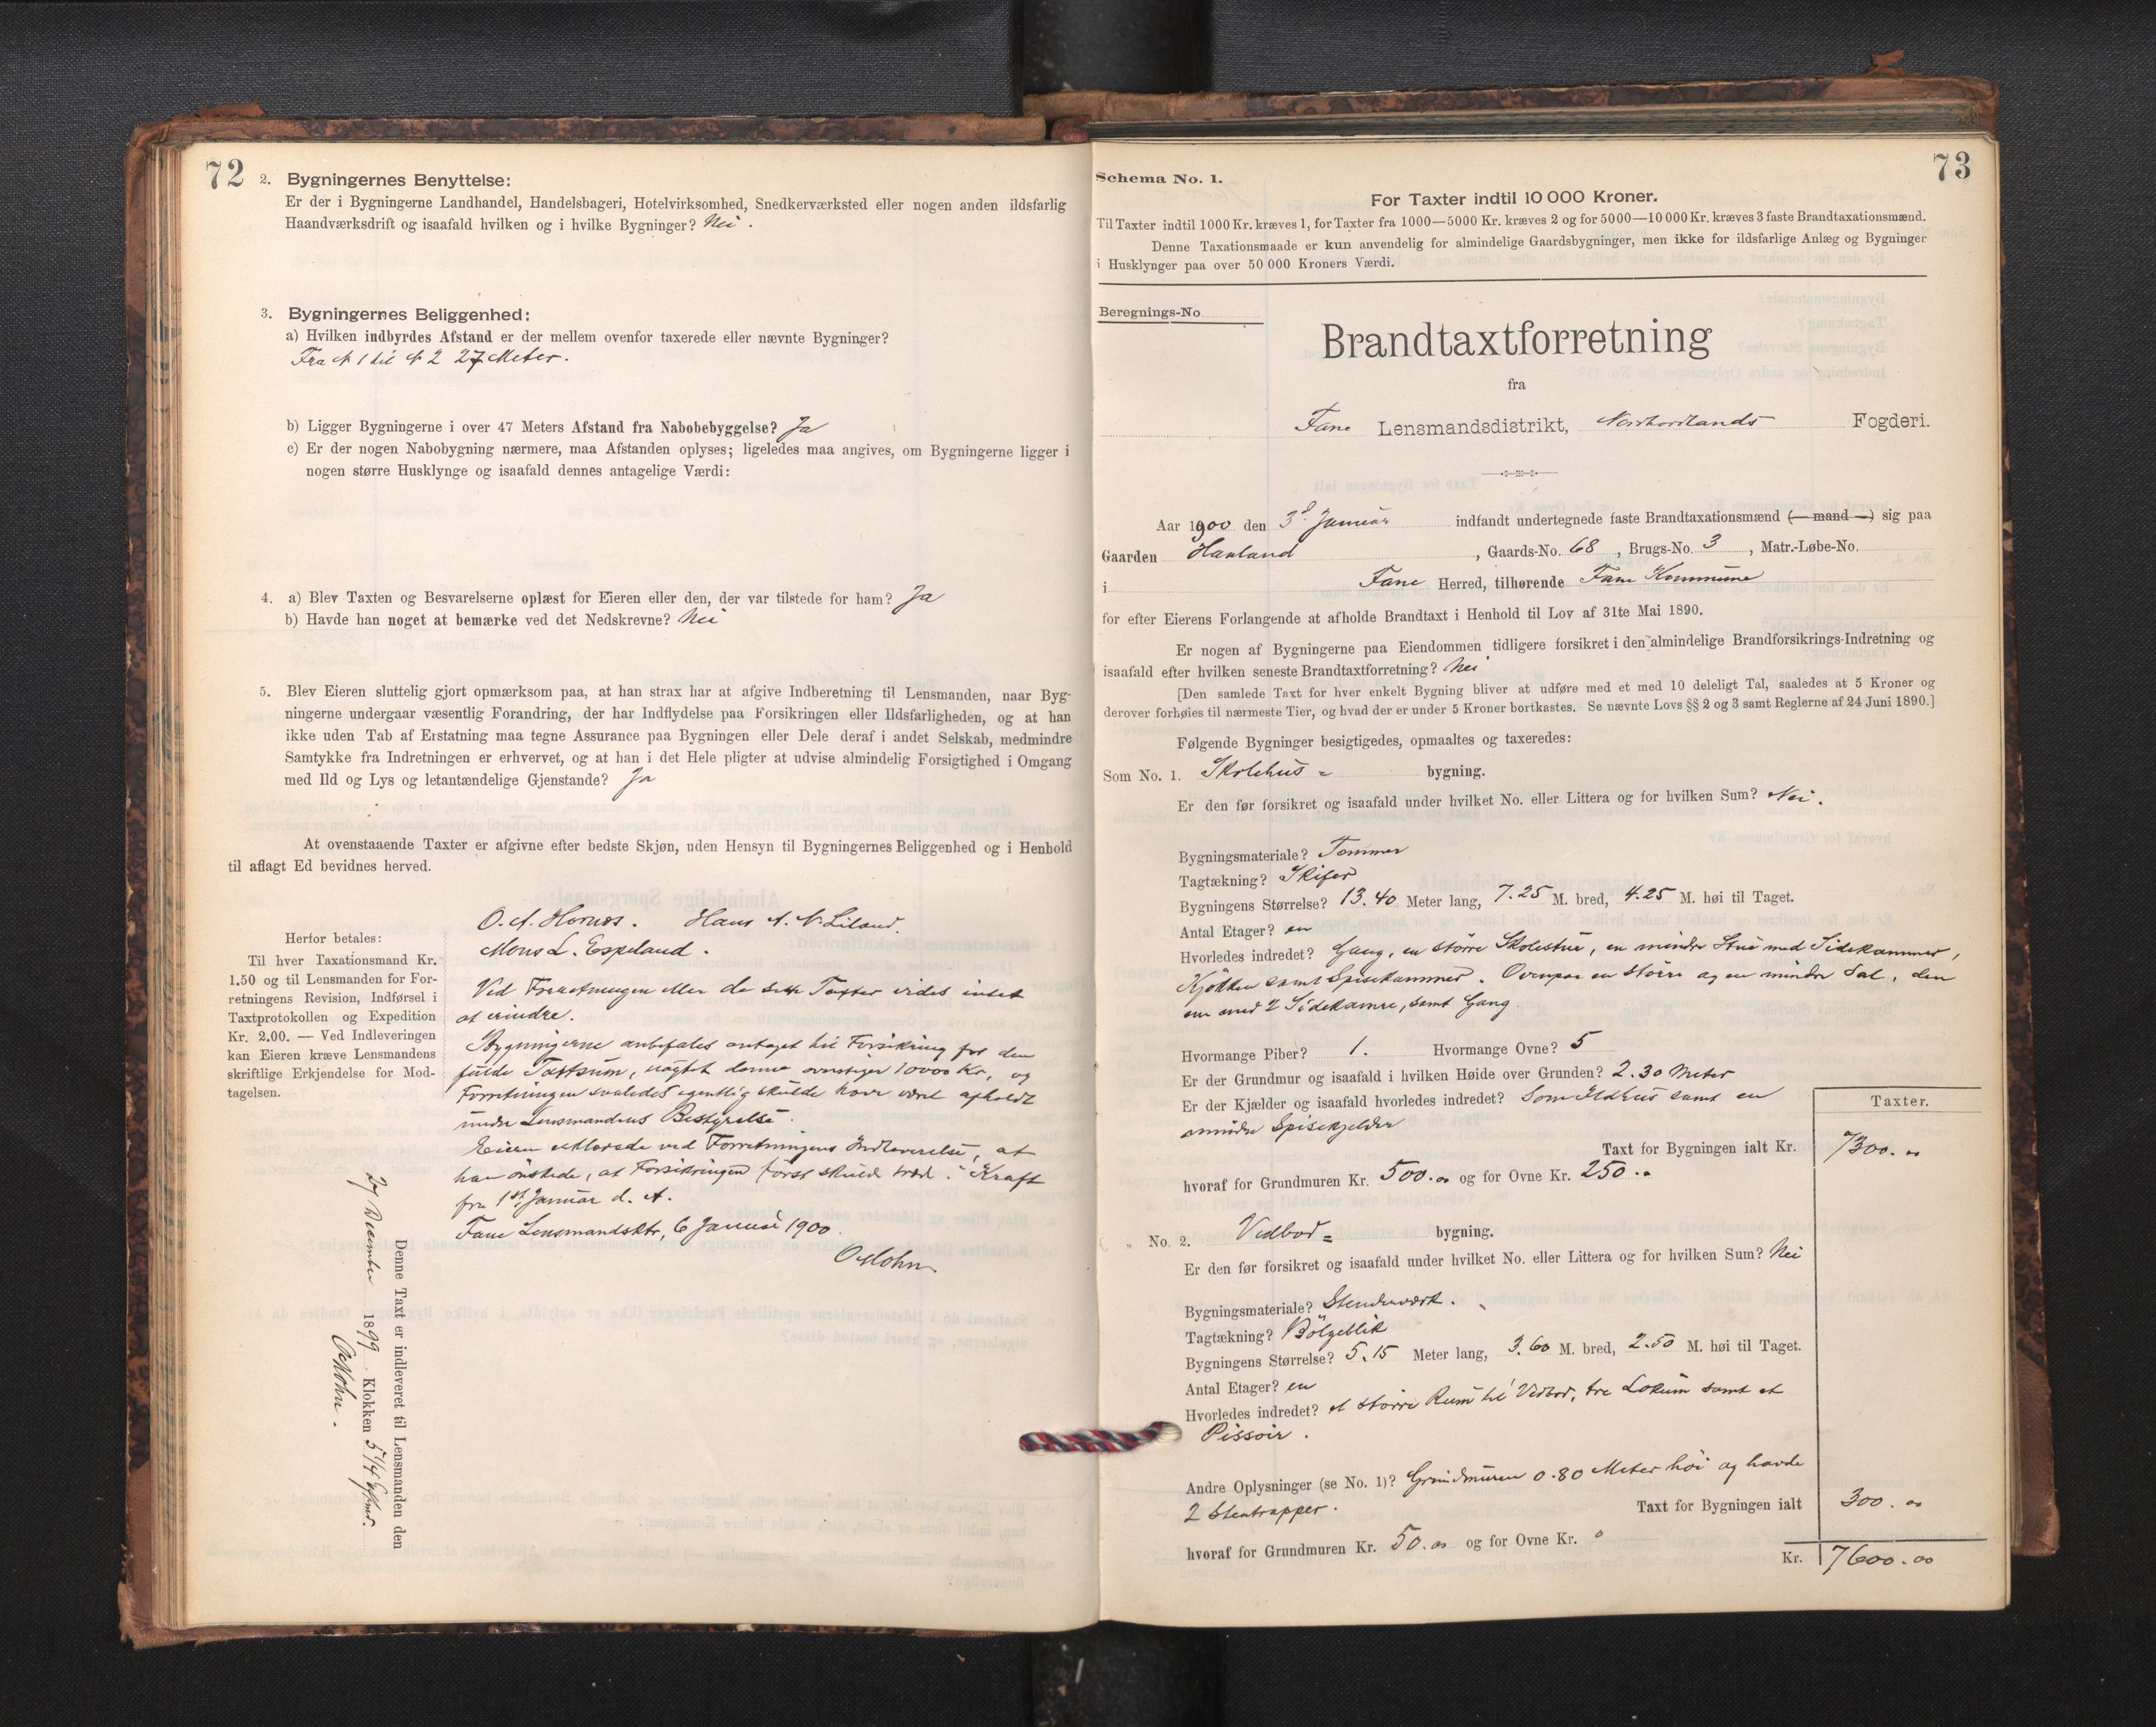 72
2. Bygningernes Benyttelse:
Er der i Bygningerne Landhandel, Handelsbageri, Hotelvirksomhed, Snedkerværksted eller nogen anden ildsfarlig
Haandværksdrift og isaafald hvilken og i hvilke Bygninger? Nei.
3. Bygningernes Beliggenhed:
a) Hvilken indbyrdes Afstand er der mellem ovenfor taxerede eller nævnte Bygninger?
Fra № 1 til № 2 27 Meter.
b) Ligger Bygningerne i over 47 Meters Afstand fra Nabobebyggelse? Ja
c) Er der nogen Nabobygning nærmere, maa Afstanden oplyses; ligeledes maa angives, om Bygningerne ligger i
nogen større Husklynge og isaafald dennes antagelige Værdi:
4. a) Blev Taxten og Besvarelserne oplæst for Eieren eller den, der var tilstede for ham? Ja
b) Havde han noget at bemærke ved det Nedskrevne? Nei
5. Blev Eieren sluttelig gjort opmærksom paa, at han strax har at afgive Indberetning til Lensmanden, naar Byg-
ningerne undergaar væsentlig Forandring, der har Indflydelse paa Forsikringen eller Ildsfarligheden, og at han
ikke uden Tab af Erstatning maa tegne Assurance paa Bygningen eller Dele deraf i andet Selskab, medmindre
Samtykke fra Indretningen er erhvervet, og at han i det Hele pligter at udvise almindelig Forsigtighed i Omgang
med Ild og Lys og letantændelige Gjenstande? Ja
At ovenstaaende Taxter er afgivne efter bedste Skjøn, uden Hensyn til Bygningernes Beliggenhed og i Henhold
til aflagt Ed bevidnes herved.
O. A. Hornes. Hans A. N. Liland.
Mons L. Espeland.
Herfor betales:
Til hver Taxationsmand Kr.
1.50 og til Lensmanden for For-
retningens Revision, Indførsel i
Taxtprotokollen og Expedition
Kr. 2.00. — Ved Indleveringen
kan Eieren kræve Lensmandens
skriftlige Erkjendelse for Mod-
tagelsen.
Ved Forretningen eller de satte Taxter vides intet
at erindre.
Bygningerne anbefales antaget til Forsikring for den
fulde Taxtsum, uagtet denne overstiger 10000 Kr, og
Forretningen saaledes egentlig skulde have været afholdt
under Lensmandens Bestyrelse.
Eieren erklærede ved Forretningens Indleverelse, at
han ønskede, at Forsikringen først skulde træde i Kraft
fra 1ste Januar d. A.
Fane Lensmandsktr, 6 Januar 1900.
O Mohn.
Denne Taxt er indleveret til Lensmanden den
27 December 1899 Klokken 5 1/4 Efterm.
O Mohn.
73
Schema No. 1.
For Taxter indtil 10 000 Kroner.
Til Taxter indtil 1000 Kr. kræves 1, for Taxter fra 1000—5000 Kr. kræves 2 og for 5000—10 000 Kr. kræves 3 faste Brandtaxationsmænd.
Denne Taxationsmaade er kun anvendelig for almindelige Gaardsbygninger, men ikke for ildsfarlige Anlæg og Bygninger
i Husklynger paa over 50 000 Kroners Værdi.
Beregnings-No.
Brandtaxtforretning
fra
Fane Lensmandsdistrikt, Nordhordlands Fogderi.
Aar 1900 den 3d Januar indfandt undertegnede faste Brandtaxationsmænd (— mand —) sig paa
Gaarden Hauland, Gaards-No. 68, Brugs-No. 3, Matr.-Løbe-No.
i Fane Herred, tilhørende Fane Kommune
for efter Eierens Forlangende at afholde Brandtaxt i Henhold til Lov af 31te Mai 1890.
Er nogen af Bygningerne paa Eiendommen tidligere forsikret i den almindelige Brandforsikrings-Indretning og
isaafald efter hvilken seneste Brandtaxtforretning? Nei
[Den samlede Taxt for hver enkelt Bygning bliver at udføre med et med 10 deleligt Tal, saaledes at 5 Kroner og
derover forhøies til nærmeste Tier, og hvad der er under 5 Kroner bortkastes. Se nævnte Lovs §§ 2 og 3 samt Reglerne af 24 Juni 1890.]
Følgende Bygninger besigtigedes, opmaaltes og taxeredes:
Som No. 1. Skolehus = bygning.
Er den før forsikret og isaafald under hvilket No. eller Littera og for hvilken Sum? Nei.
Bygningsmateriale? Tømmer
Tagtækning? Skifer
Bygningens Størrelse? 13.40 Meter lang, 7.25 M. bred, 4.25 M. høi til Taget.
Antal Etager? en
Hvorledes indredet? Gang, en større Skolestue, en mindre Stue med Sidekammer,
Kjøkken samt Spisekammer. Ovenpaa en større og en mindre Sal, den
ene med 2 Sidekamre, samt Gang.
Hvormange Piber? 1. Hvormange Ovne? 5
Er der Grundmur og isaafald i hvilken Høide over Grunden? 2.30 Meter
Er der Kjælder og isaafald hvorledes indredet? Som Ildhus samt en
mindre Spisekjelder
Taxter.
Taxt for Bygningen ialt Kr. 7300.00
hvoraf for Grundmuren Kr. 500.00 og for Ovne Kr. 250.00
„ No. 2. Vedbod = bygning.
Er den før forsikret og isaafald under hvilket No. eller Littera og for hvilken Sum? Nei
Bygningsmateriale? Stenderværk.
Tagtækning? Bølgeblik
Bygningens Størrelse? 5.15 Meter lang, 3.60 M. bred, 2.50 M. høi til Taget.
Antal Etager? en
Hvorledes indredet? et større Rum til Vedbod, tre Lokum samt et
Pissoir.
Andre Oplysninger (se No. 1)? Grundmuren 0.80 Meter høi og havde
2 Stentrapper.
Taxt for Bygningen ialt 300.00
hvoraf for Grundmuren Kr. 50.00 og for Ovne Kr. 0
Kr. 7600.00